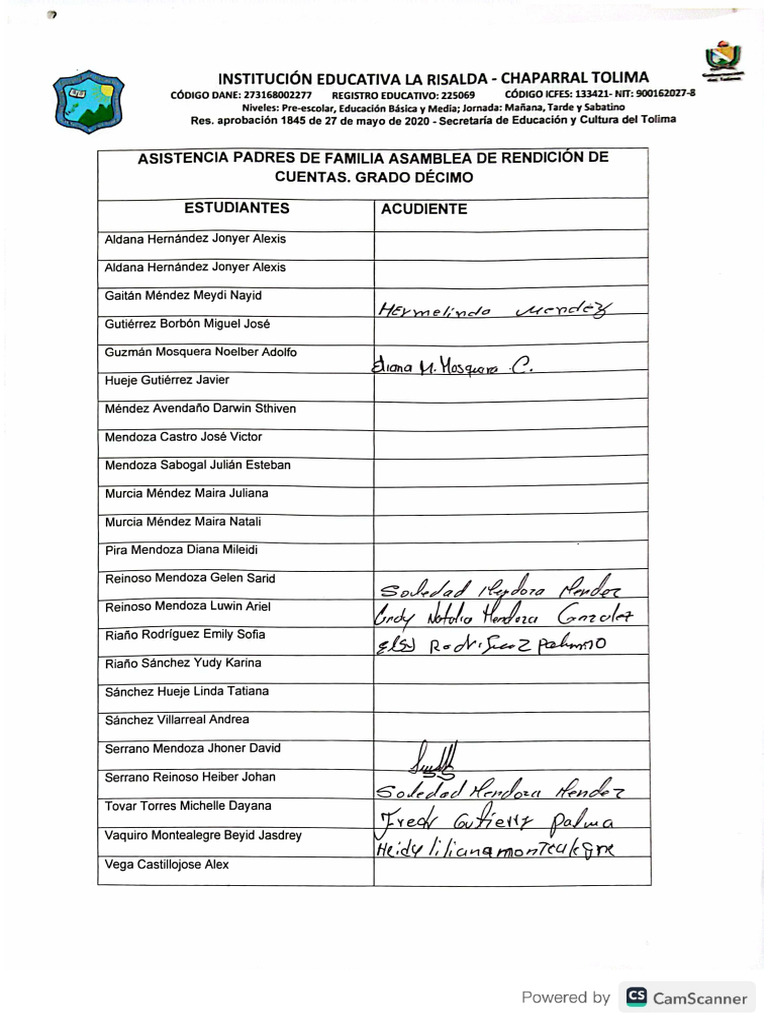 INSTITUCIÓN EDUCATIVA LA RISALDA - CHAPARRAL TOLIMA
CÓDIGO DANE: 273168002277 REGISTRO EDUCATIVO: 225069 CÓDIGO ICFES: 133421- NIT: 900162027-8
Niveles: Pre-escolar, Educación Básica y Media; Jornada: Mañana, Tarde y Sabatino
Res. aprobación 1845 de 27 de mayo de 2020 - Secretaría de Educación y Cultura del Tolima
ASISTENCIA PADRES DE FAMILIA ASAMBLEA DE RENDICIÓN DE
CUENTAS. GRADO DÉCIMO
ESTUDIANTES ACUDIENTE
Aldana Hernández Jonyer Alexis
Aldana Hernández Jonyer Alexis
Gaitán Méndez Meydi Nayid Hermelinda Mendez
Gutiérrez Borbón Miguel José
Guzmán Mosquera Noelber Adolfo diana M. Mosquera C.
Hueje Gutiérrez Javier
Méndez Avendaño Darwin Sthiven
Mendoza Castro José Victor
Mendoza Sabogal Julián Esteban
Murcia Méndez Maira Juliana
Murcia Méndez Maira Natali
Pira Mendoza Diana Mileidi
Reinoso Mendoza Gelen Sarid Soledad Mendoza Mendez
Reinoso Mendoza Luwin Ariel Natalia Mendoza Gonzalez
Riaño Rodríguez Emily Sofia Rodriguez
Riaño Sánchez Yudy Karina
Sánchez Hueje Linda Tatiana
Sánchez Villarreal Andrea
Serrano Mendoza Jhoner David
Serrano Reinoso Heiber Johan Soledad Mendoza Mendez
Tovar Torres Michelle Dayana Fredy Gutierrez Palma
Vaquiro Montealegre Beyid Jasdrey Heidy liliana montealegre
Vega Castillojose Alex
Powered by CS CamScanner